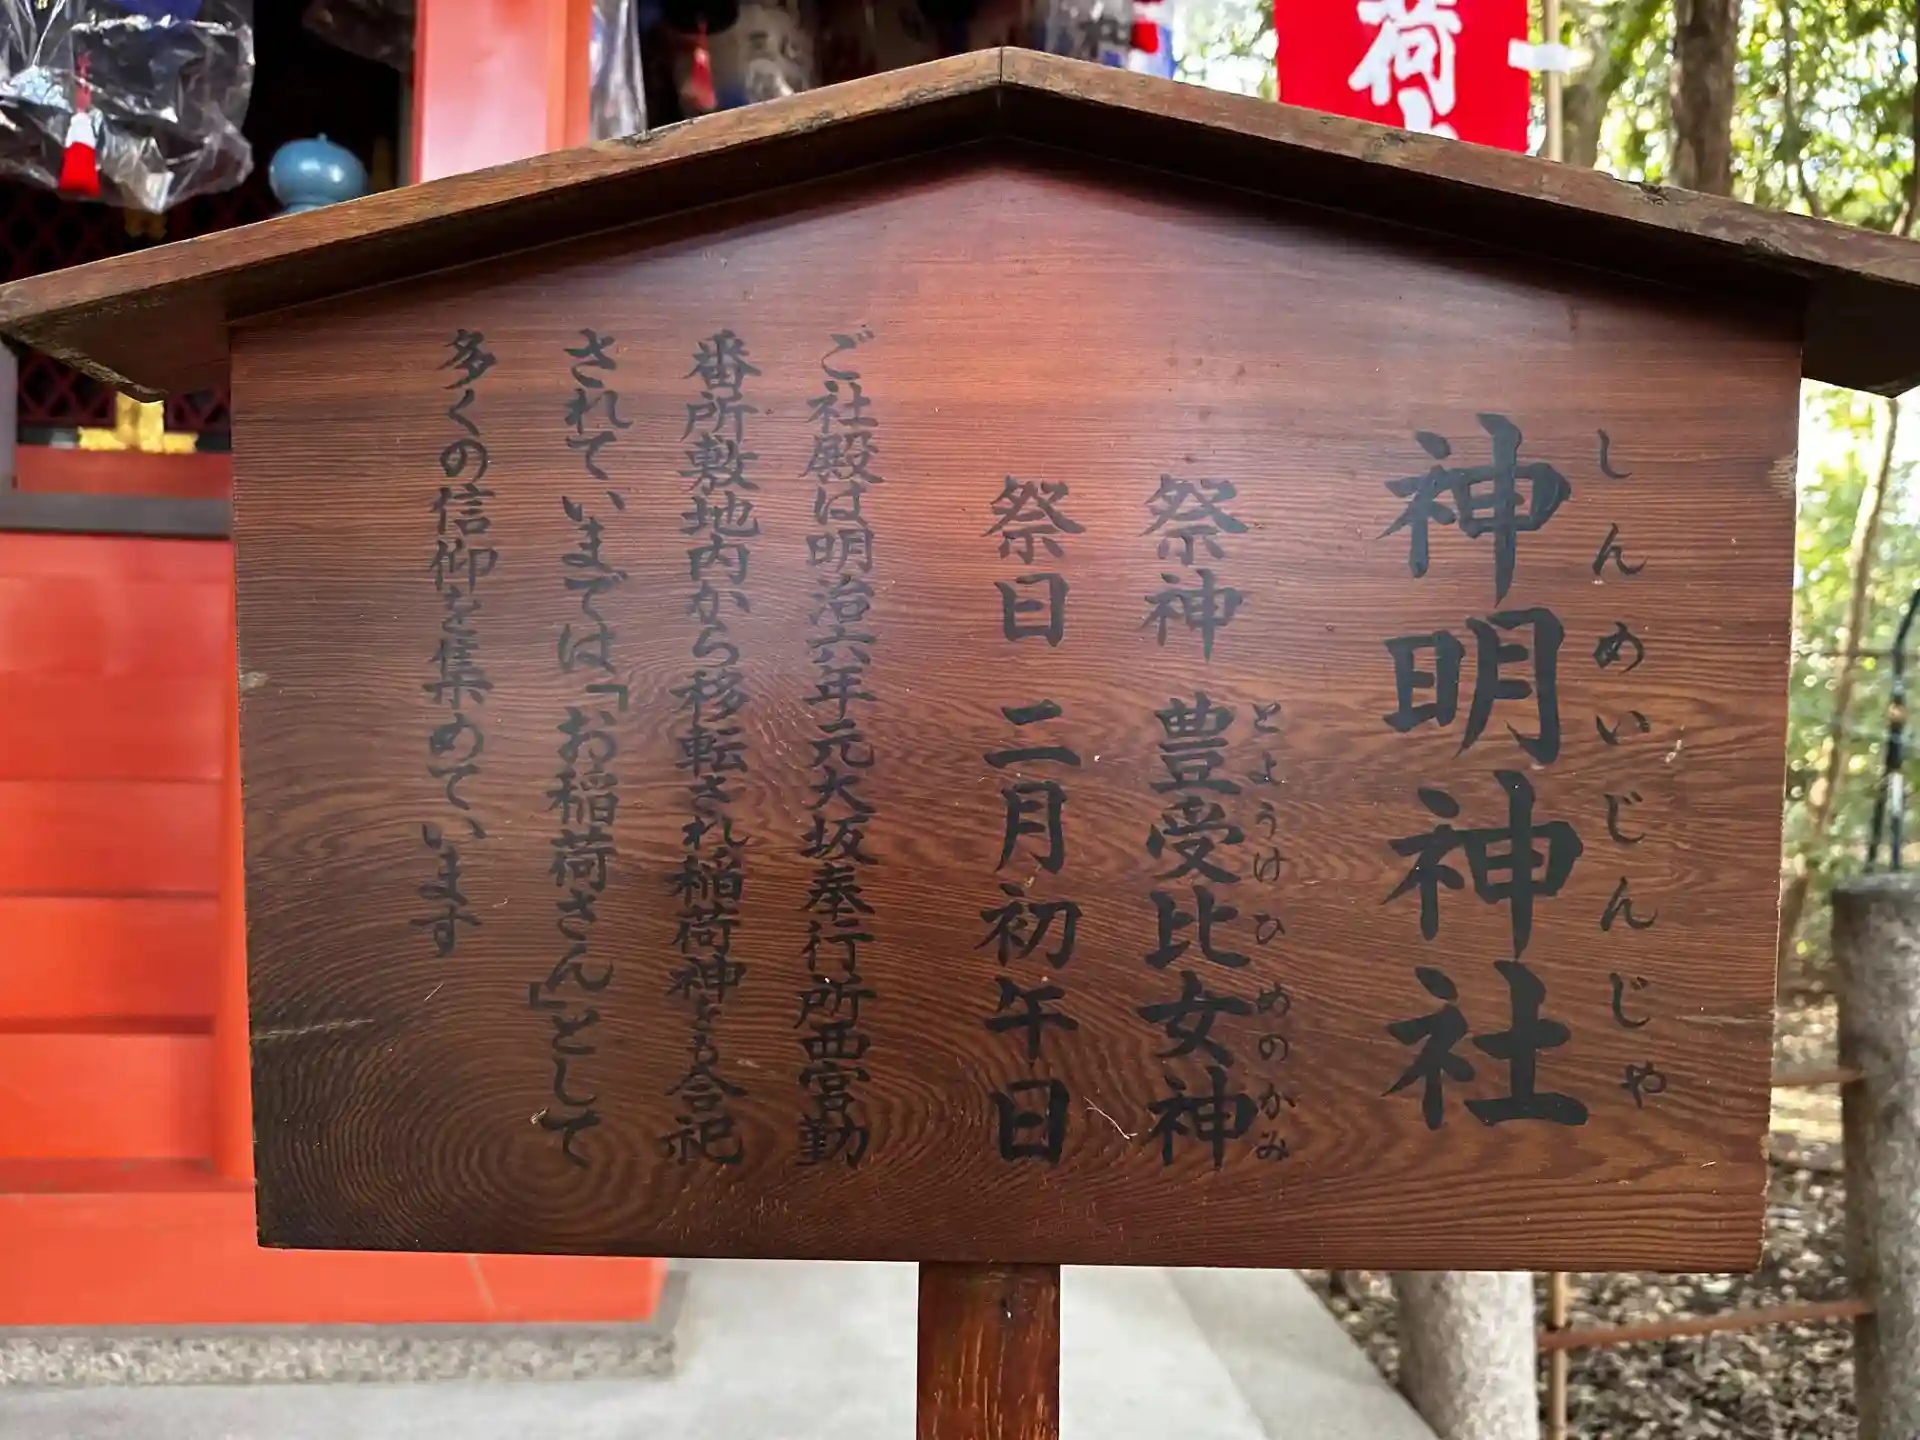 荷大
しんめいじんじゃ
神明神社
とようけひめのかみ
祭神 豊受比女神
祭日 二月初午日
ご社殿は明治六年元大坂奉行所西宮勤
番所敷地内から移転され稲荷神をも合祀
されていまでは「お稲荷さん」として
多くの信仰を集めています